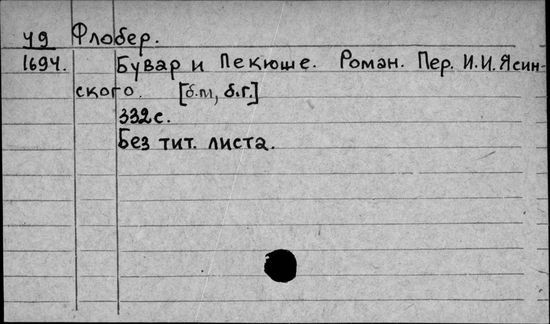 49 Флобер.
1694. Бувар и Пекюше. Роман. Пер. И.И.Ясин-
ского. [б.м, б.г.]
332с.
Без тит. листа.